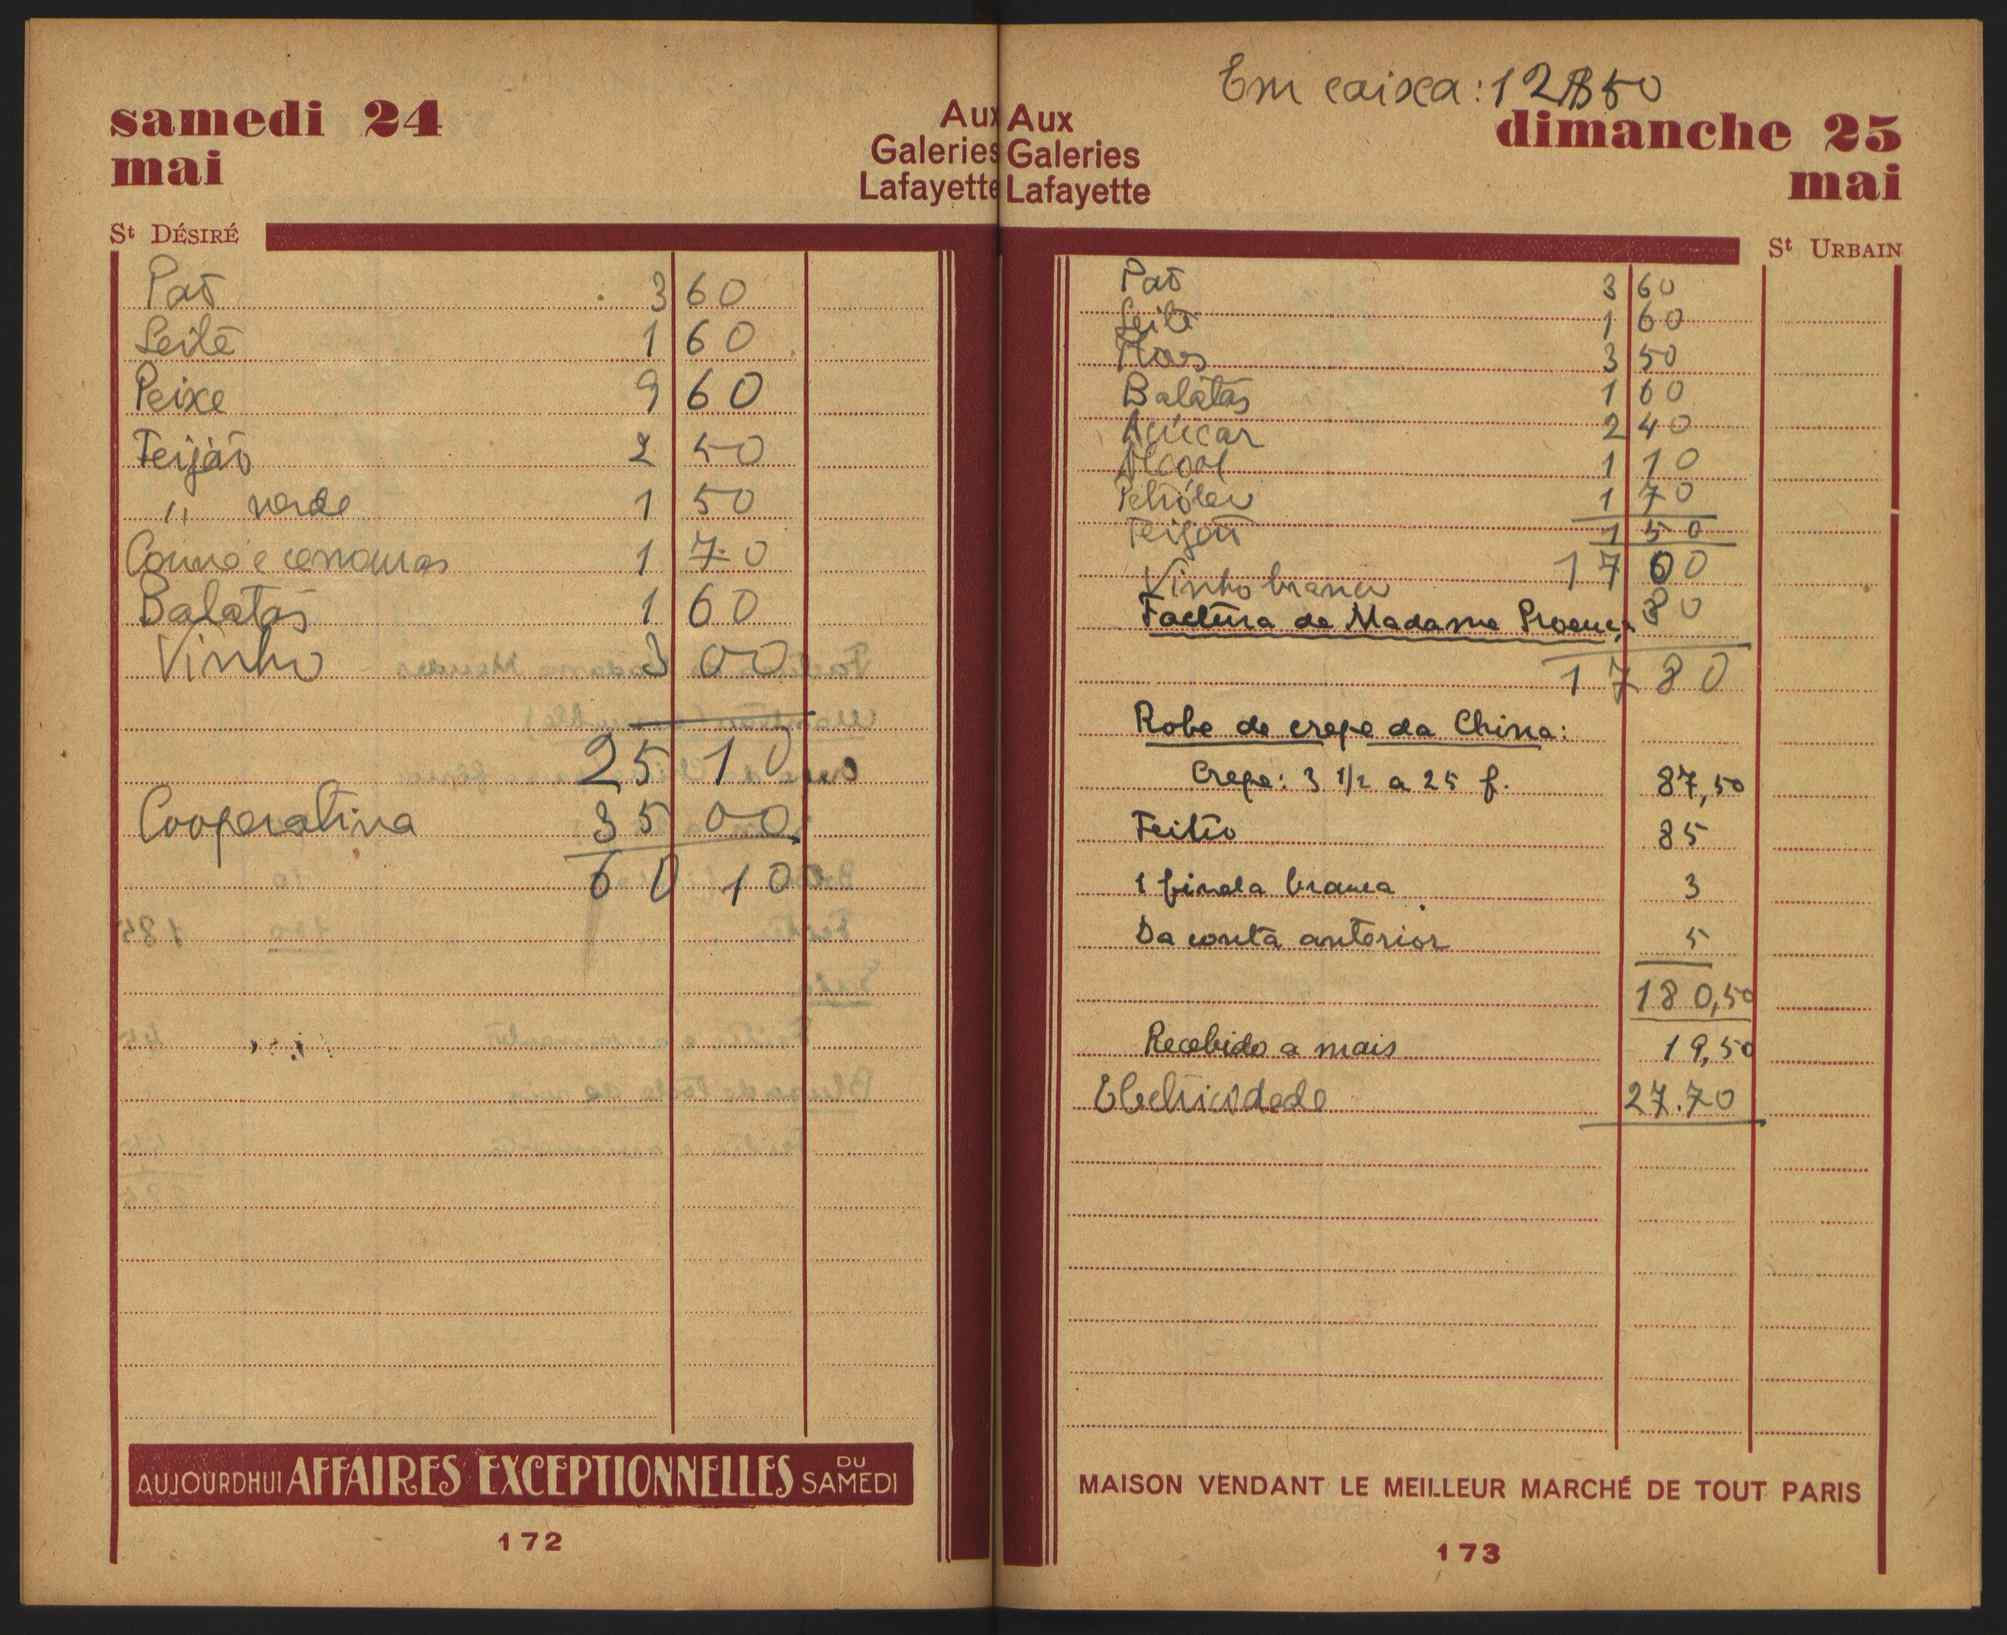 samedi 24
mai
Aux
Galeries
Lafayette
St DÉSIRÉ
Paõ 3 60
Leite 1 60
Peixe 9 60
Feijão 2 50
" verde 1 50
Couve e cenouras 1 70
Batatas 1 60
Vinho 3 00
25 10
Cooperativa 35 00
60 10
AUJOURDHUI AFFAIRES EXCEPTIONNELLES DU SAMEDI
172
Em caixa: 12$50
Aux
Galeries
Lafayette
dimanche 25
mai
St URBAIN
Paõ 3 60
Leite 1 60
3 50
Batatas 1 60
Açúcar 2 40
Alcool 1 10
Petróleo 1 70
Feijão 1 50
17 00
Vinho branco 80
Factura de Madame Proença
17 80
Robe de crepe da China:
Crepe: 3 1/2 a 25 f. 87,50
Feitio 85
1 fivela branca 3
Da conta anterior 5
180,50
Recebido a mais 19,50
Electricidade 27.70
MAISON VENDANT LE MEILLEUR MARCHÉ DE TOUT PARIS
173